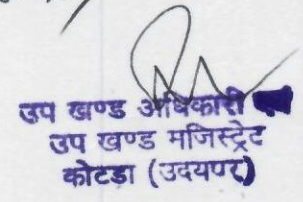 उप खण्ड अधिकारी एवं
उप खण्ड मजिस्ट्रेट
कोटडा (उदयपर)